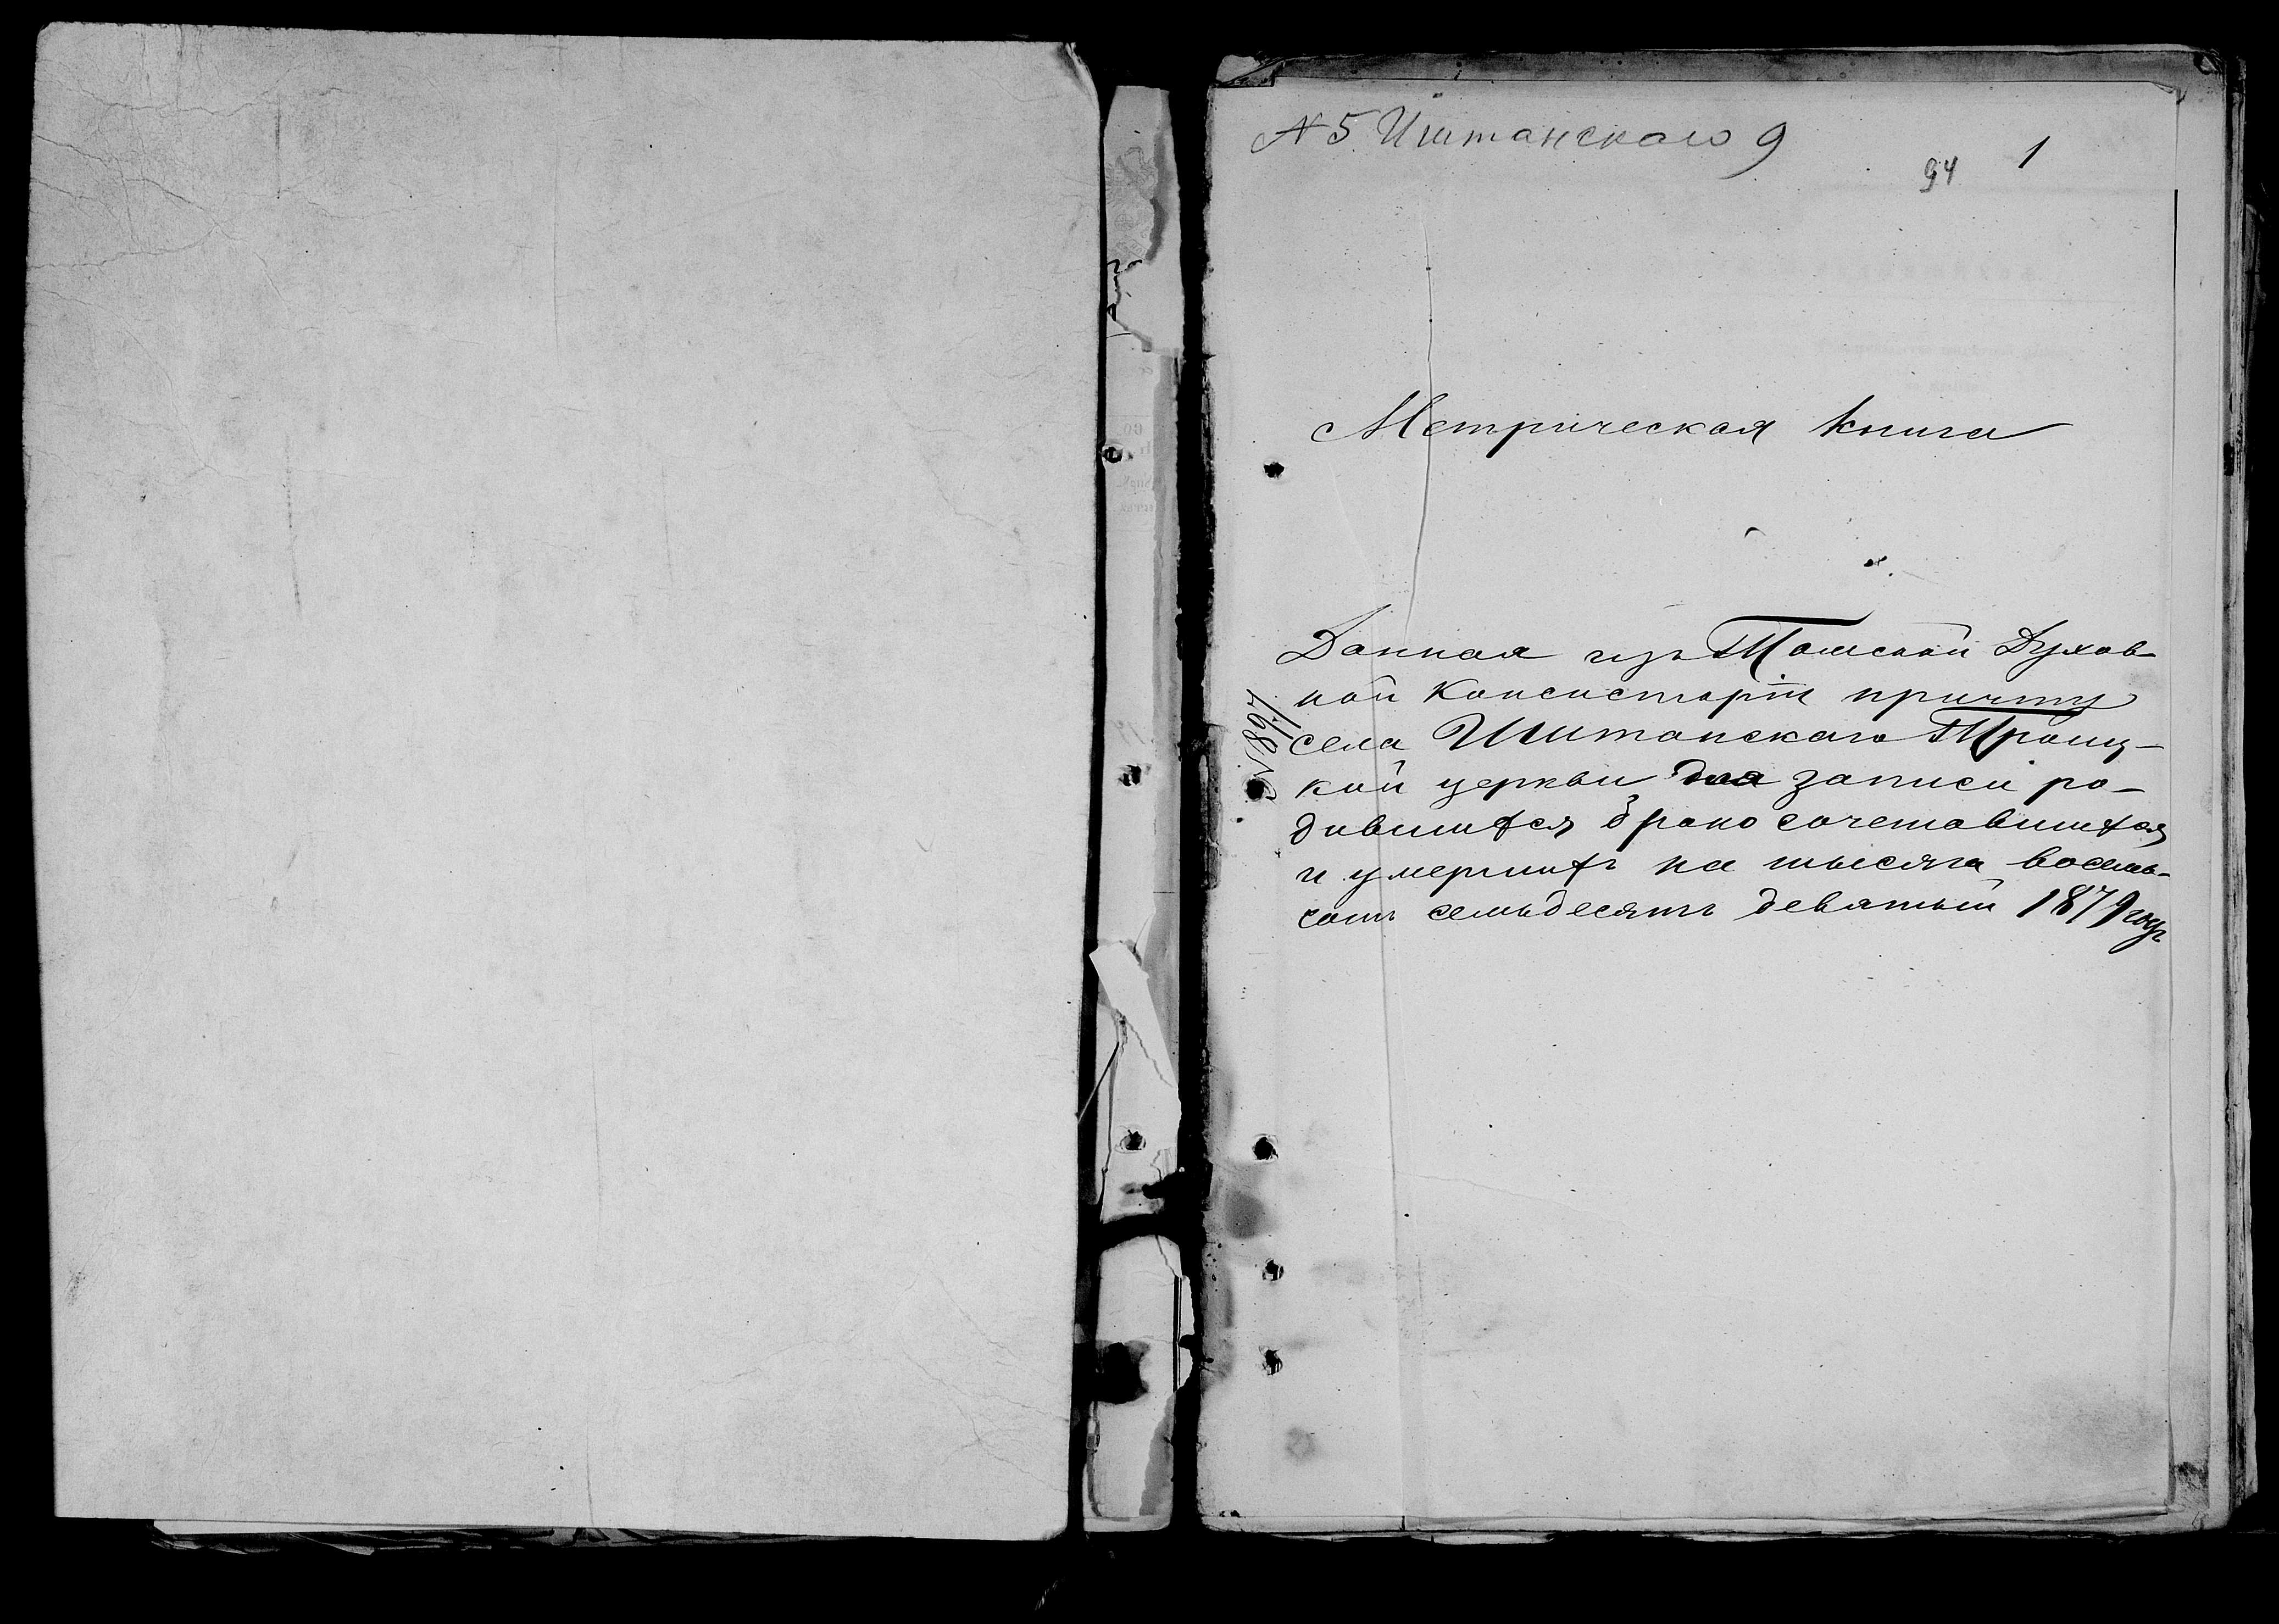 № 5 Иштанскаго 9
94 1
Метрическая книга
Данная изъ Томской Духов-
ной Консисторіи причту
села Иштанскаго Троиц-
кой церкви для записи ро-
дившихся бракосочетавшихся
и умершихъ на тысяча восемь-
сотъ семьдесятъ девятый 1879 годъ